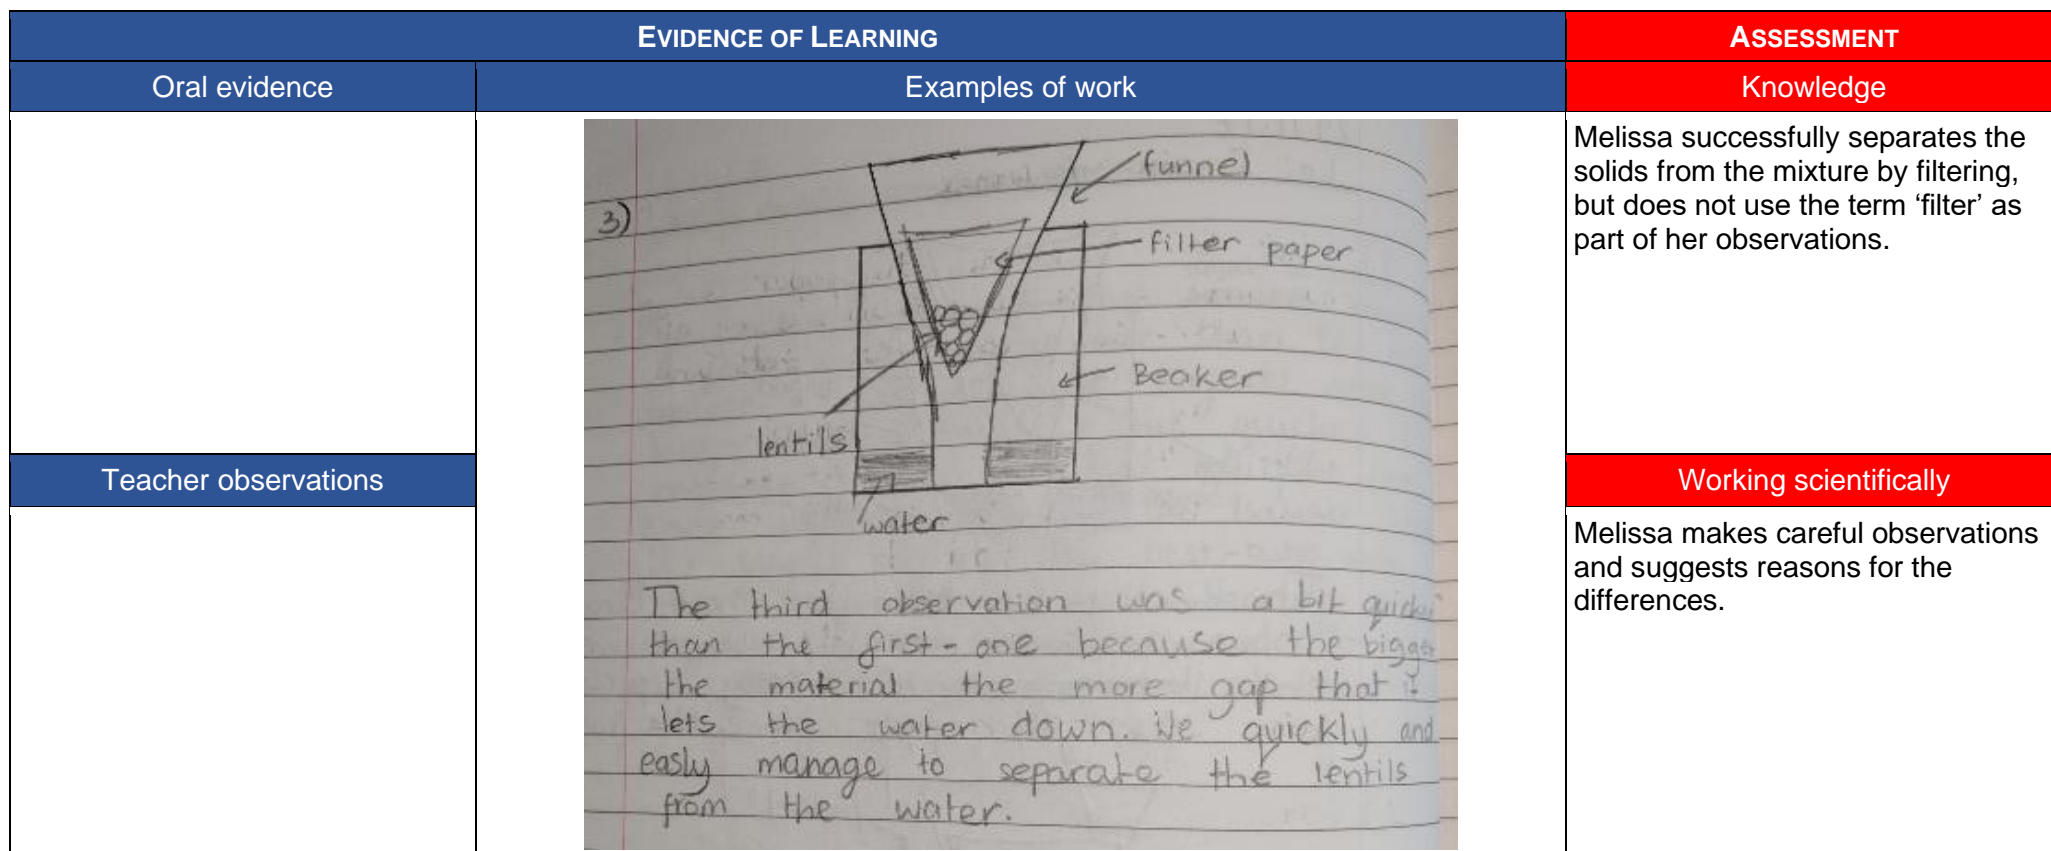 EVIDENCE OF LEARNING
ASSESSMENT
Oral evidence
Examples of work
Knowledge
3)
funnel
filter paper
Beaker
lentils
water
The third observation was a bit
than the first-one because the
the material the more gap that
lets the water down. We quickly and
easly manage to separate the lentils
from the water.
Melissa successfully separates the
solids from the mixture by filtering,
but does not use the term ‘filter’ as
part of her observations.
Teacher observations
Working scientifically
Melissa makes careful observations
and suggests reasons for the
differences.